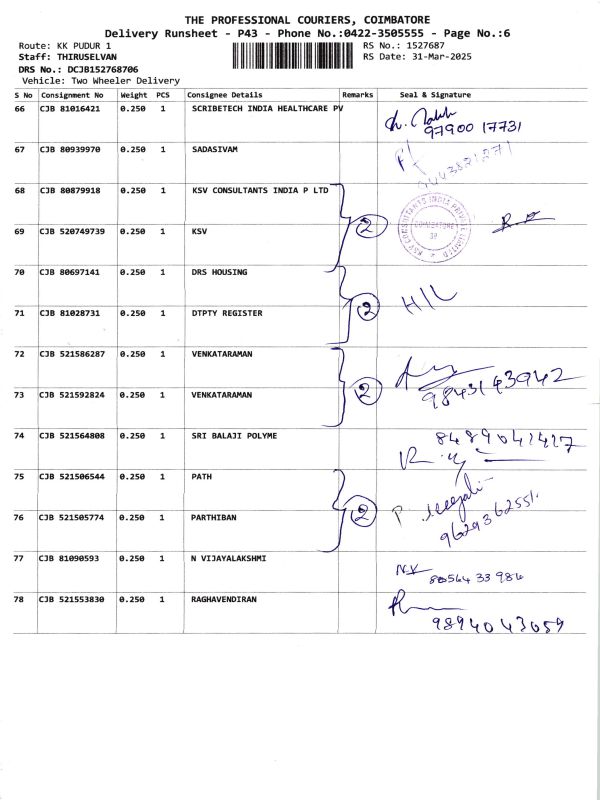 THE PROFESSIONAL COURIERS, COIMBATORE
Delivery Runsheet - P43 - Phone No.:0422-3505555 - Page No.:6
Route: KK PUDUR 1 RS No.: 1527687
Staff: THIRUSELVAN RS Date: 31-Mar-2025
DRS No.: DCJB152768706
Vehicle: Two Wheeler Delivery
S No Consignment No Weight PCS Consignee Details Remarks Seal & Signature
66 CJB 81016421 0.250 1 SCRIBETECH INDIA HEALTHCARE PV
97900 17731
67 CJB 80939970 0.250 1 SADASIVAM
68 CJB 80879918 0.250 1 KSV CONSULTANTS INDIA P LTD
KSV CONSULTANTS INDIA PRIVATE LIMITED
COIMBATORE
2
69 CJB 520749739 0.250 1 KSV
70 CJB 80697141 0.250 1 DRS HOUSING
2
71 CJB 81028731 0.250 1 DTPTY REGISTER
72 CJB 521586287 0.250 1 VENKATARAMAN
2 98431 43942
73 CJB 521592824 0.250 1 VENKATARAMAN
74 CJB 521564808 0.250 1 SRI BALAJI POLYME
8489041417
75 CJB 521506544 0.250 1 PATH
2
76 CJB 521505774 0.250 1 PARTHIBAN
9629362551
77 CJB 81090593 0.250 1 N VIJAYALAKSHMI
N.V
80564 33 986
78 CJB 521553830 0.250 1 RAGHAVENDIRAN
9894043059